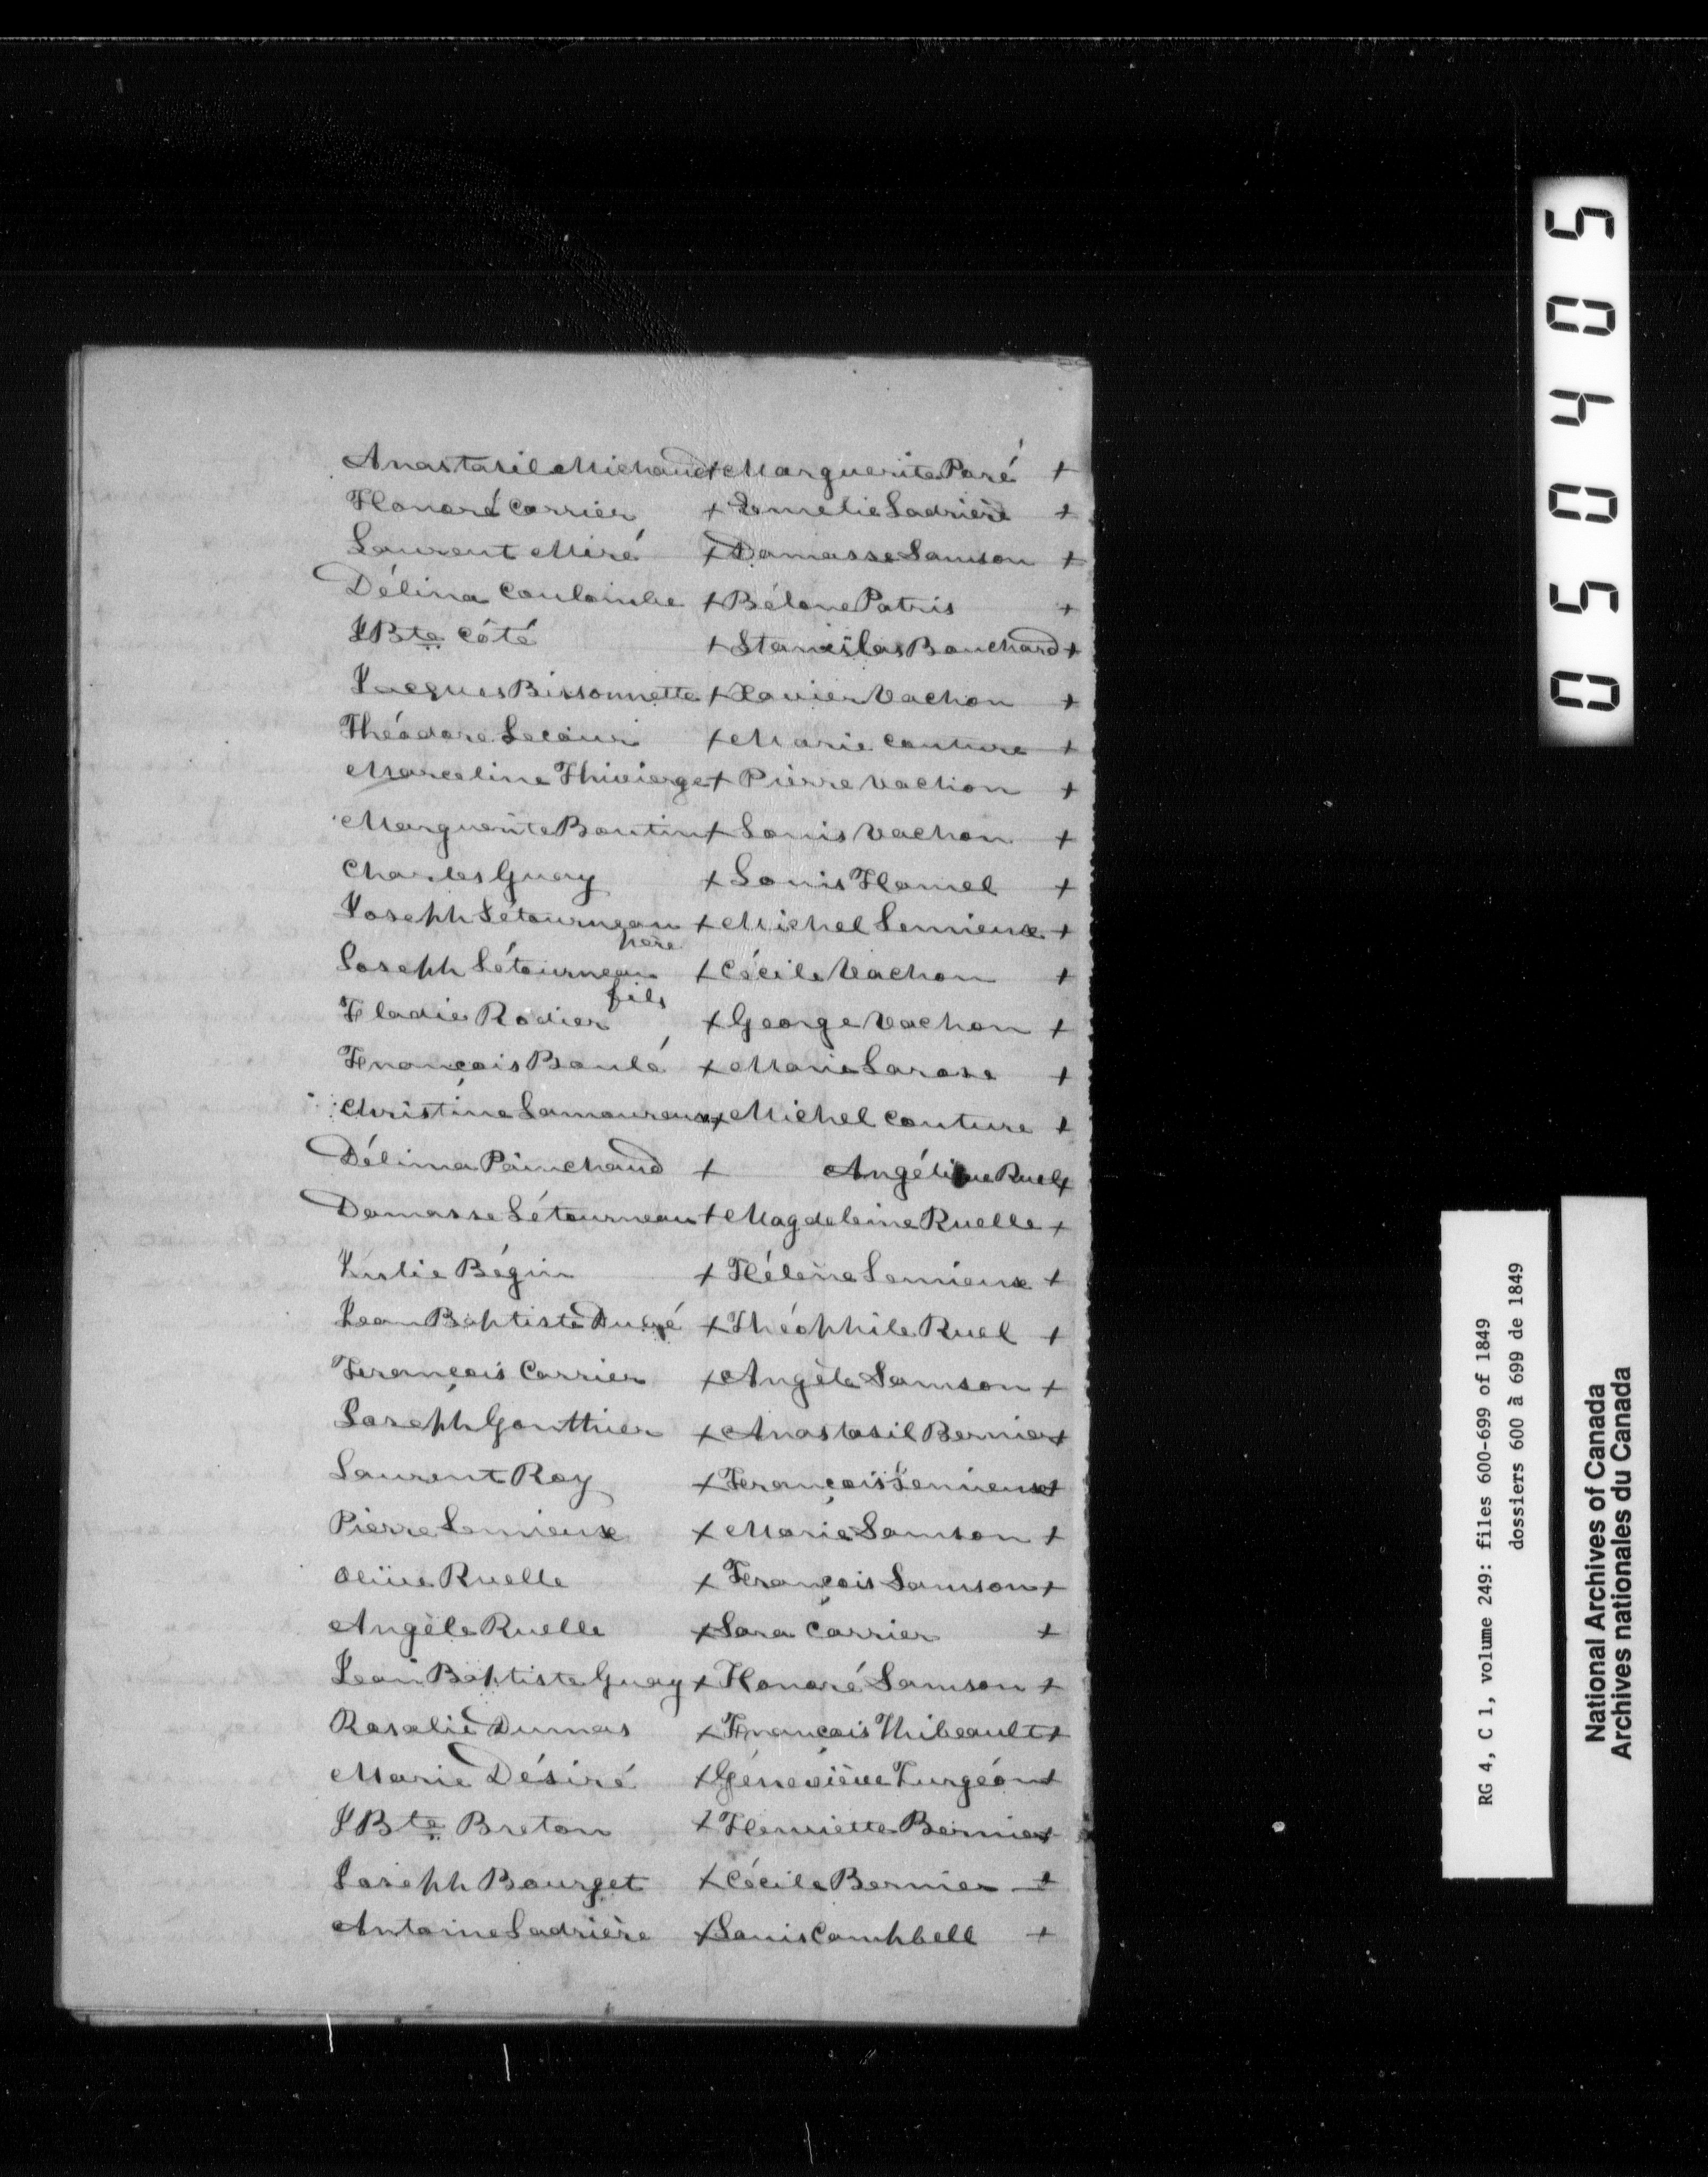 Anastasil Michaud + Marguerite Paré +
Honoré Carrier + Emelie Ladrière +
Laurent Miré + Damasse Samson +
Délina Coulombe + Bélone Patris +
JBte Côté + Stanislas Bouchard +
Jacques Bissonnette + Xavier Vachon +
Théodore Lecours + Marie Couture +
Marceline Thivierge + Pierre Vachon +
Marguerite Boutin + Louis Vachon +
Charles Guay + Louis Hamel +
Joseph Létourneau père + Michel Lemieux +
Joseph Létourneau fils + Cécile Vachon +
Eladie Rodier + George Vachon +
François Baulé + Marie Larose +
Christine Lamoureux + Michel Couture +
Délima Painchaud + Angélique Ruel +
Damasse Létourneau + Magdeleine Ruelle +
Julie Bégin + Hélène Lemieux +
Jean Baptiste + Théophile Ruel +
François Carrier + Angèle Samson +
Joseph Gonthier + Anastasil Bernier +
Laurent Roy + François Lemieux +
Pierre Lemieux + Marie Samson +
Olive Ruelle + François Samson +
Angèle Ruelle + Sara Carrier +
Jean Baptiste Guay + Honoré Samson +
Rosalie Dumas + François Thibeault +
Marie Désiré + Généviève Turgéon +
JBte Breton + Henriette Bernier +
Joseph Bourget + Cécile Bernier +
Antoine Ladrière + Louis Campbell +
050405
RG 4, C 1, volume 249: files 600-699 of 1849
dossiers 600 à 699 de 1849
National Archives of Canada
Archives nationales du Canada